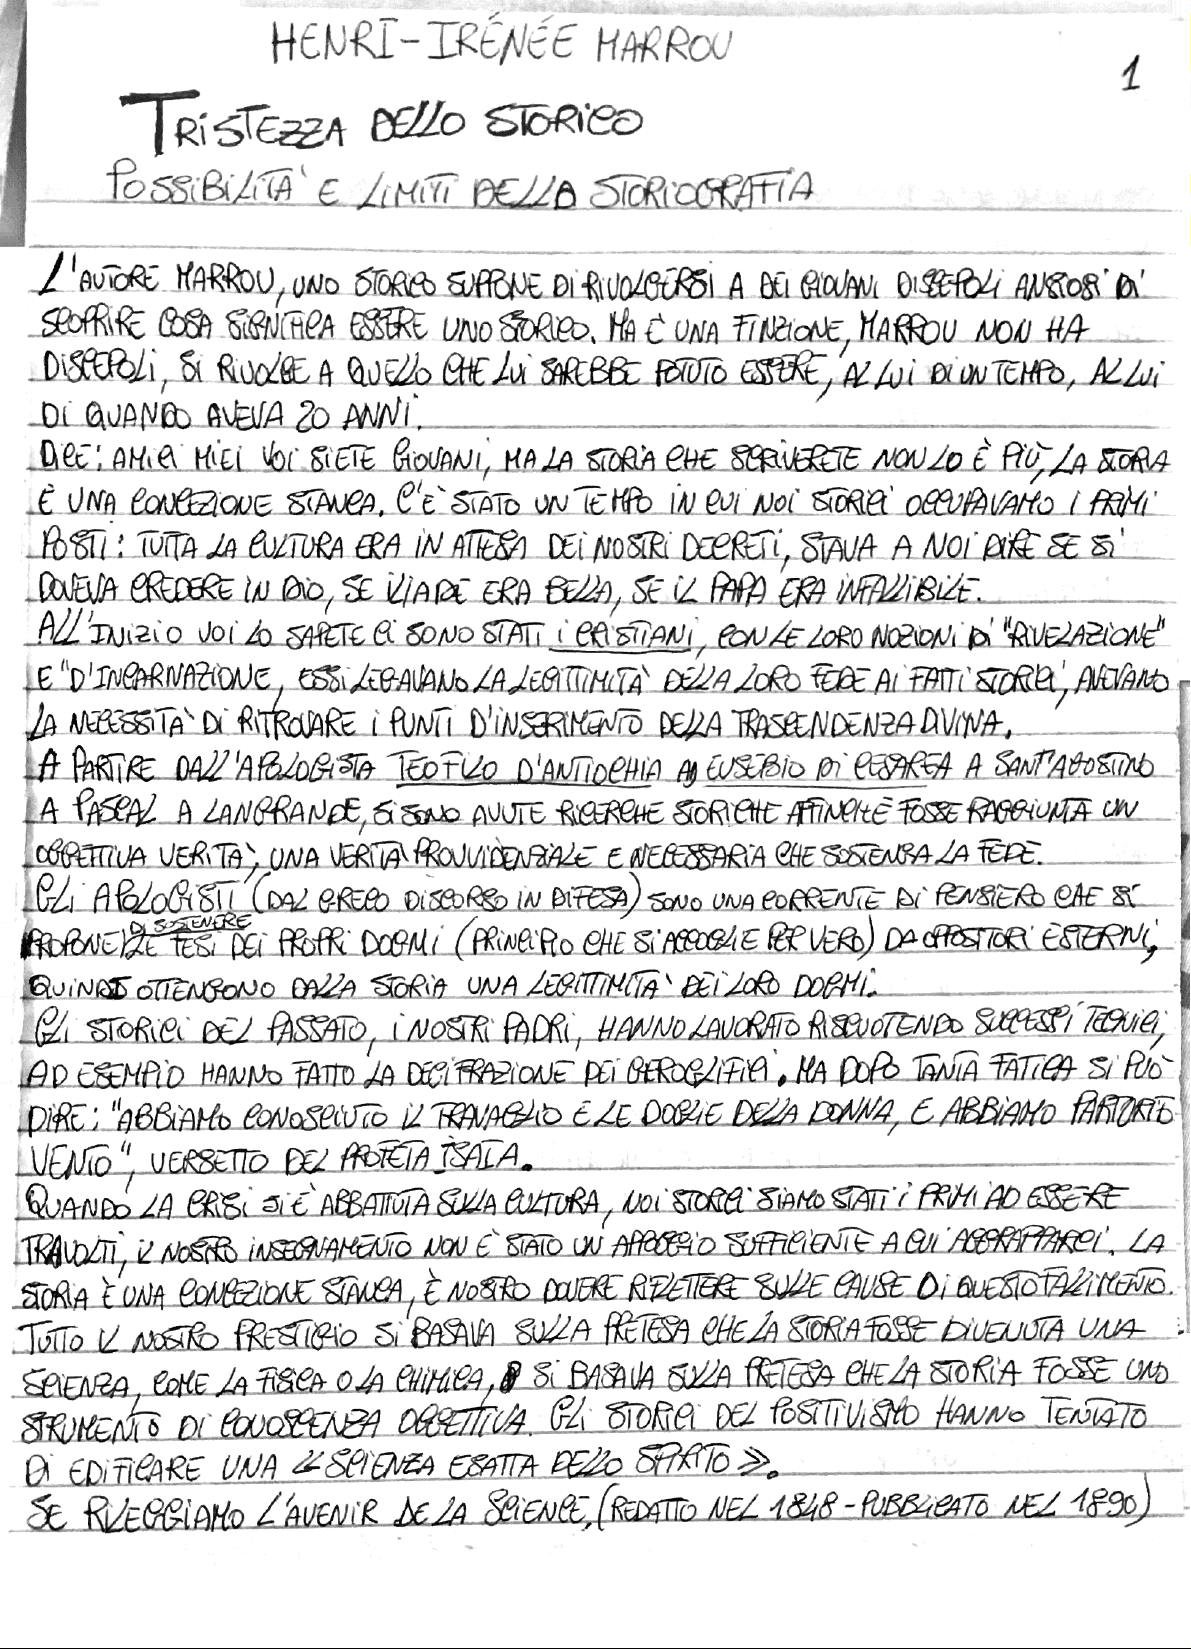 HENRI-IRÉNÉE MARROU
1
TRISTEZZA DELLO STORICO
POSSIBILITA' E LIMITI DELLA STORIOGRAFIA
L'AUTORE MARROU, UNO STORICO SUPPONE DI RIVOLGERSI A DEI GIOVANI DISCEPOLI ANSIOSI DI
SCOPRIRE COSA SIGNIFICA ESSERE UNO STORICO. MA È UNA FINZIONE, MARROU NON HA
DISCEPOLI, SI RIVOLGE A QUELLO CHE LUI SAREBBE POTUTO ESSERE, AL LUI DI UN TEMPO, AL LUI
DI QUANDO AVEVA 20 ANNI.
DICE: AMICI MIEI VOI SIETE GIOVANI, MA LA STORIA CHE SCRIVERETE NON LO È PIÙ, LA STORIA
È UNA CONCEZIONE STANCA. C'È STATO UN TEMPO IN CUI NOI STORICI OCCUPAVAMO I PRIMI
POSTI: TUTTA LA CULTURA ERA IN ATTESA DEI NOSTRI DECRETI, STAVA A NOI DIRE SE SI
DOVEVA CREDERE IN DIO, SE ILIADE ERA BELLA, SE IL PAPA ERA INFALLIBILE.
ALL'INIZIO VOI LO SAPETE CI SONO STATI I CRISTIANI, CON LE LORO NOZIONI DI "RIVELAZIONE"
E "D'INCARNAZIONE, ESSI LEGAVANO LA LEGITTIMITA' DELLA LORO FEDE AI FATTI STORICI, AVEVANO
LA NECESSITA' DI RITROVARE I PUNTI D'INSERIMENTO DELLA TRASCENDENZA DIVINA.
A PARTIRE DALL'APOLOGISTA TEOFILO D'ANTIOCHIA AD EUSEBIO DI CESAREA A SANT'AGOSTINO
A PASCAL A LANGRANDE, SI SONO AVUTE RICERCHE STORICHE AFFINCHÈ FOSSE RAGGIUNTA UN
OGGETTIVA VERITA', UNA VERITA' PROVVIDENZIALE E NECESSARIA CHE SOSTENGA LA FEDE.
GLI APOLOGISTI (DAL GRECO DISCORSO IN DIFESA) SONO UNA CORRENTE DI PENSIERO CHE SI
DI SOSTENERE
PROPONE LE TESI DEI PROPRI DOGMI (PRINCIPIO CHE SI ACCOGLIE PER VERO) DA OPPOSITORI ESTERNI,
QUINDI OTTENGONO DALLA STORIA UNA LEGITTIMITA' DEI LORO DOGMI.
GLI STORICI DEL PASSATO, I NOSTRI PADRI, HANNO LAVORATO RISCUOTENDO SUCCESSI TECNICI,
AD ESEMPIO HANNO FATTO LA DECIFRAZIONE DEI GEROGLIFICI. MA DOPO TANTA FATICA SI PUÒ
DIRE: "ABBIAMO CONOSCIUTO IL TRAVAGLIO E LE DOGLIE DELLA DONNA, E ABBIAMO PARTORITO
VENTO", VERSETTO DEL PROFETA ISAIA.
QUANDO LA CRISI SI È ABBATTUTA SULLA CULTURA, NOI STORICI SIAMO STATI I PRIMI AD ESSERE
TRAVOLTI, IL NOSTRO INSEGNAMENTO NON È STATO UN APPOGGIO SUFFICIENTE A CUI AGGRAPPARCI. LA
STORIA È UNA CONCEZIONE STANCA, È NOSTRO DOVERE RIFLETTERE SULLE CAUSE DI QUESTO FALLIMENTO.
TUTTO IL NOSTRO PRESTIGIO SI BASAVA SULLA PRETESA CHE LA STORIA FOSSE DIVENUTA UNA
SCIENZA, COME LA FISICA O LA CHIMICA, SI BASAVA SULLA PRETESA CHE LA STORIA FOSSE UNO
STRUMENTO DI CONOSCENZA OGGETTIVA. GLI STORICI DEL POSITIVISMO HANNO TENTATO
DI EDIFICARE UNA « SCIENZA ESATTA DELLO SPIRITO ».
SE RILEGGIAMO L'AVENIR DE LA SCIENCE, (REDATTO NEL 1848 - PUBBLICATO NEL 1890)